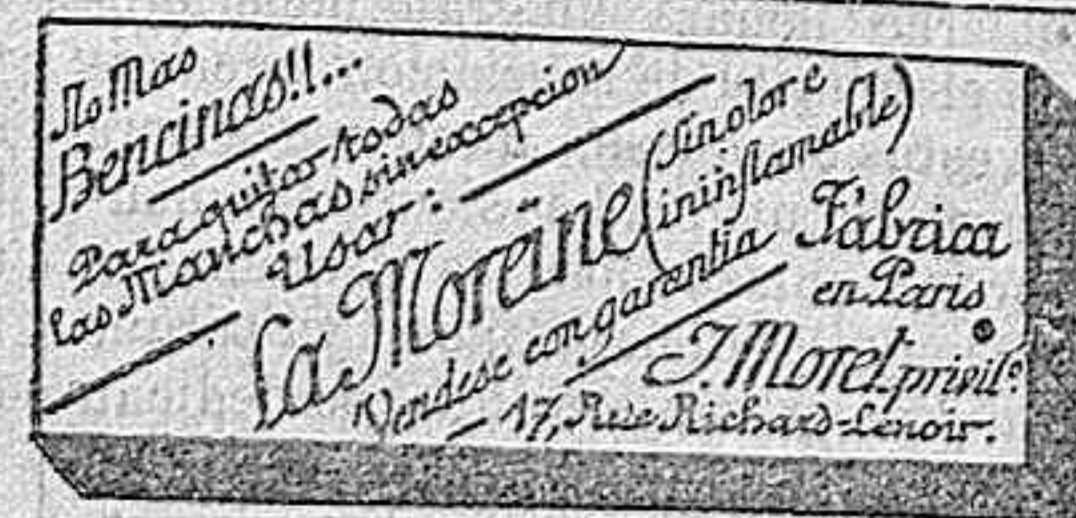 No Mas
Bencinas!!...
Para quitar todas
las Manchas sin excepcion
Usar:
La Moreïne
(sin olor e
ininflamable)
Vendese con garantia
Fábrica
en Paris
J. Moret. privilº.
17, Rue Richard-Lenoir.